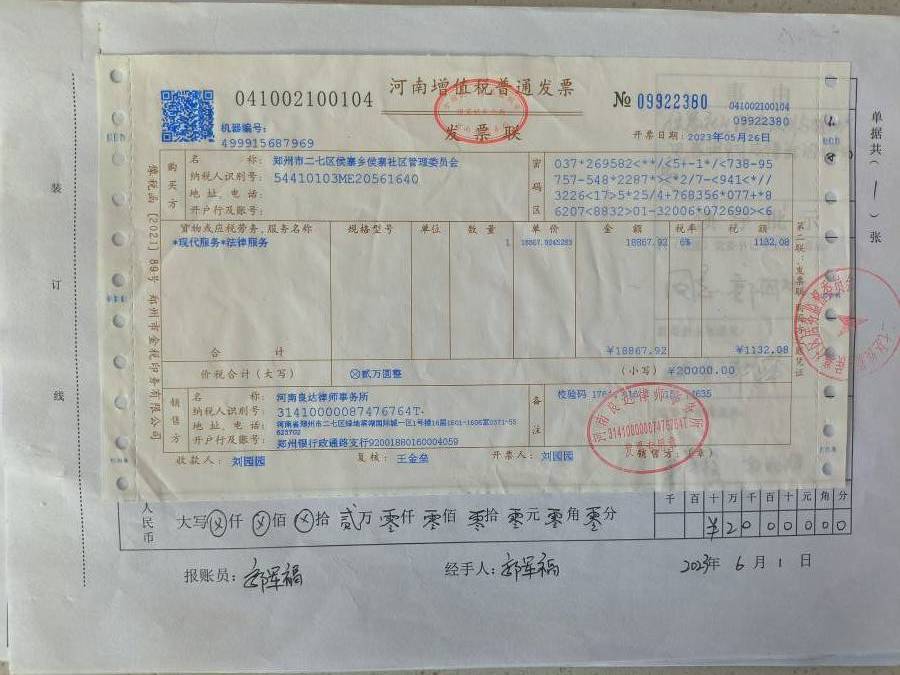 041002100104
河南增值税普通发票
发票联
№ 09922380
041002100104
09922380
机器编号:
499915687969
开票日期: 2023年05月26日
购买方
名 称: 郑州市二七区侯寨乡侯寨社区管理委员会
纳税人识别号: 54410103ME20561640
地址、电话:
开户行及账号:
密码区
037*269582<**/<5+-1*/<738-95
757-548*2287*><*2/7-<941<*//
3226<17>5*25/4+768356*077+*8
6207<8832>01-32006*072690><6
货物或应税劳务、服务名称 规格型号 单位 数量 单价 金额 税率 税额
*现代服务*法律服务 1 18867.9245283 18867.92 6% 1132.08
合 计 ¥18867.92 ¥1132.08
价税合计(大写) ⊗贰万圆整 (小写) ¥20000.00
销售方
名 称: 河南良达律师事务所
纳税人识别号: 31410000087476764T
地址、电话: 河南省郑州市二七区绿地滨湖国际城一区1号楼16层1601-1606室0371-55
623702
开户行及账号: 郑州银行政通路支行92001880160004059
备注
校验码
收款人: 刘园园 复核: 王金垒 开票人: 刘园园 销售方:(章)
第二联:发票联
郑州市金税印务有限公司
单据共(一)张
装
订
线
人民币
大写⊗仟⊗佰⊗拾贰万零仟零佰零拾零元零角零分
千百十万千百十元角分
¥2000000
报账员: 郝军福 经手人: 郝军福 2023年6月1日